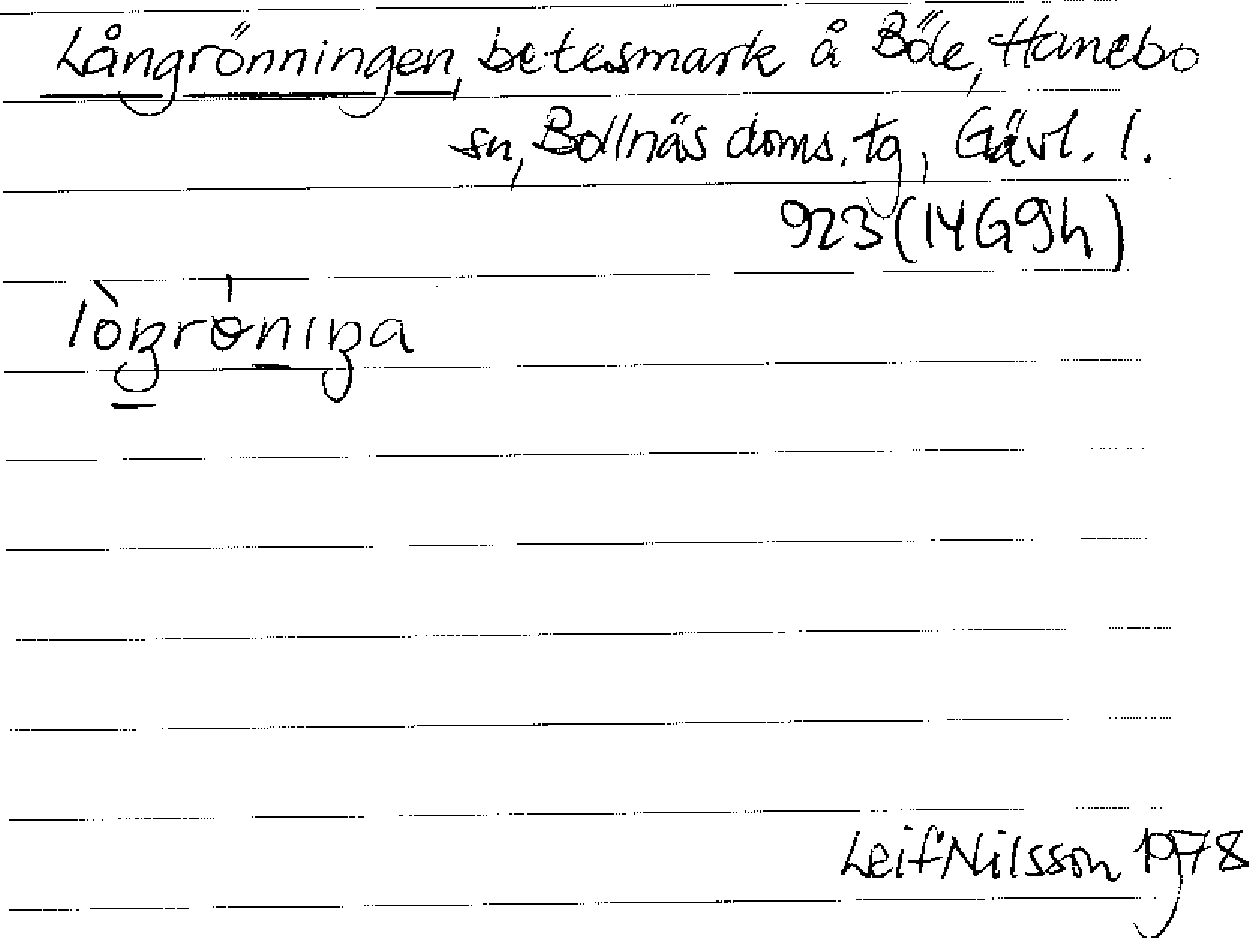 Långrönningen, betesmark å Böle, Hanebo
sn, Bollnäs doms. tg, Gävl. l.
923 (14G9h)
lòŋrɵ̍niŋa
Leif Nilsson 1978